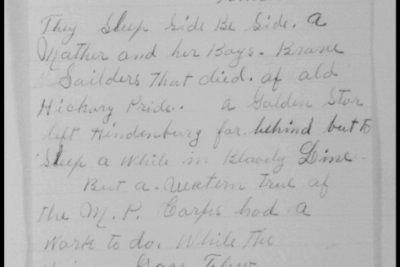 They Sleep Side Be Side. a
Mather and her Boys. Brave
Sailders That died. of ald
Hickory Pride. a Golden Star
left Hindenburg far behind but to
Sleep a while in Bloody Line.
But a true of
the M. P. Carps had a
Work to do. While the